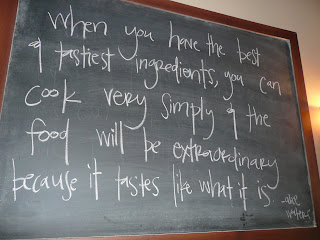 When you have the best
& tastiest ingredients, you can
cook very simply & the
food will be extraordinary
because it tastes like what it is.
-alice
waters